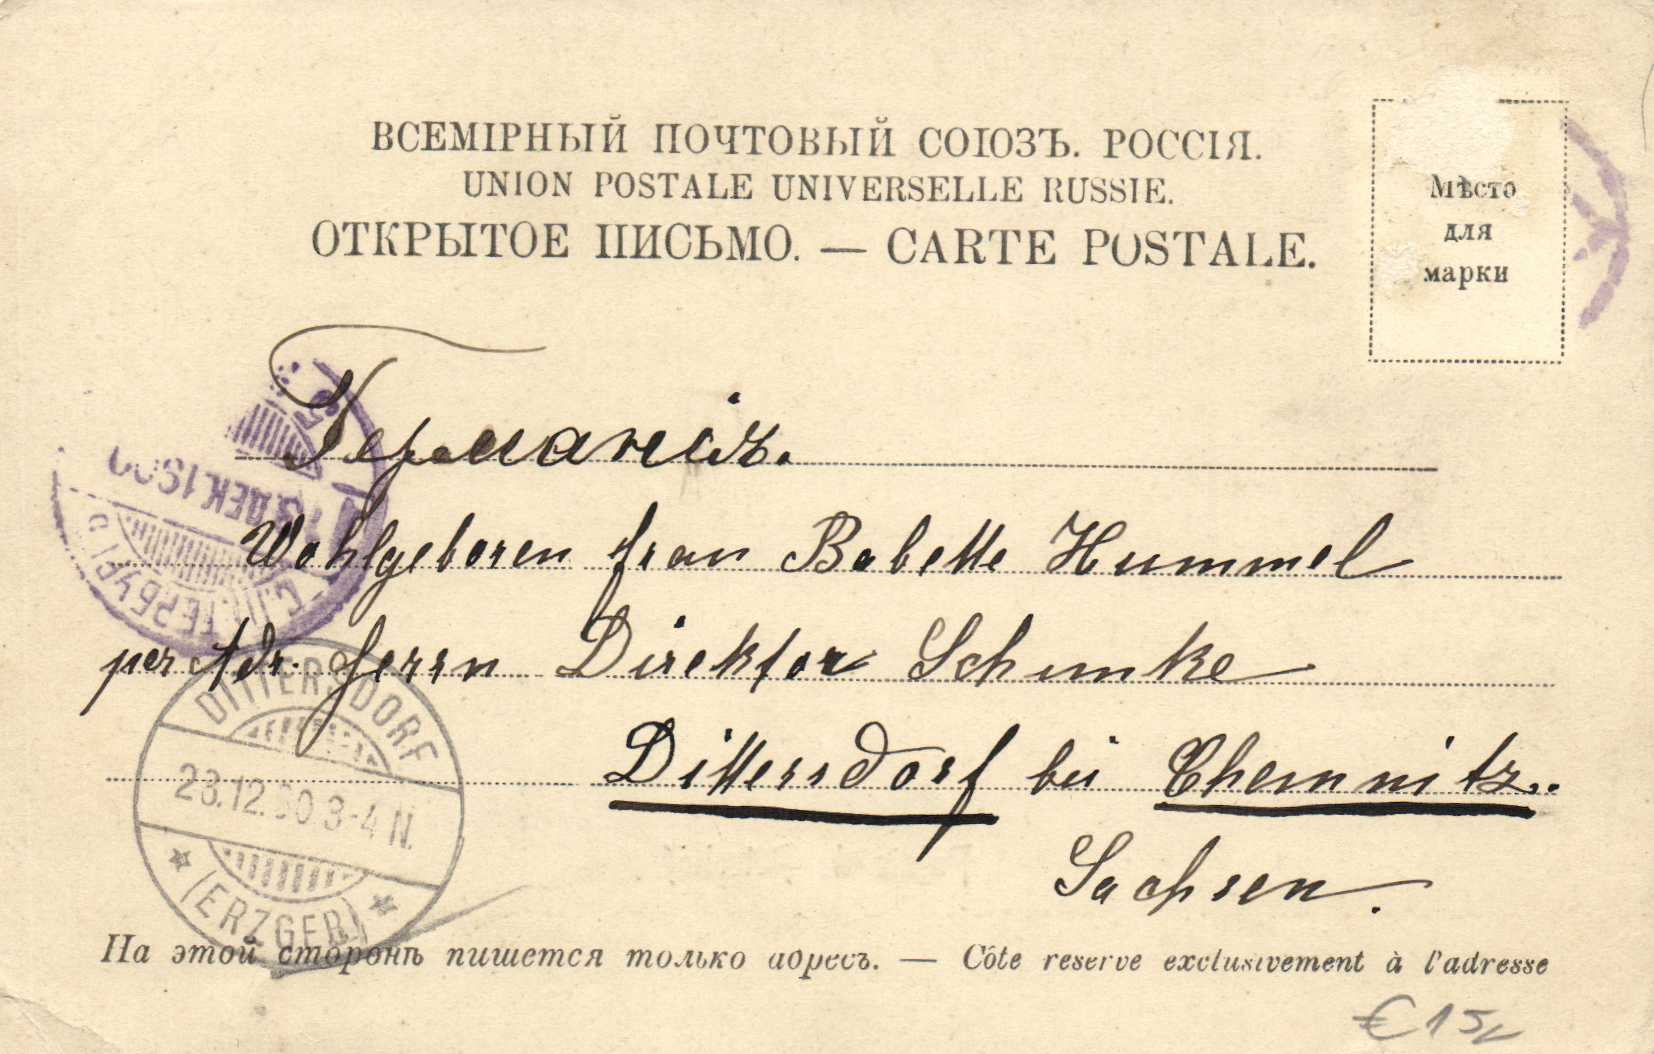 ВСЕМІРНЫЙ ПОЧТОВЫЙ СОЮЗЪ. РОССІЯ.
UNION POSTALE UNIVERSELLE RUSSIE.
ОТКРЫТОЕ ПИСЬМО. — CARTE POSTALE.
Мѣсто
для
марки
Германія.
13 ДЕК. 1900
С. ПЕТЕРБУРГ
Wohlgeboren frau Babette Hummel
per Adr. Herrn Direktor Schimke
Dittersdorf bei Chemnitz..
Sachsen.
DITTERSDORF
23.12.00 3-4 N.
(ERZGEB.)
На этой сторонѣ пишется только адресъ. — Côte reserve exclusivement à l'adresse
€ 15,-